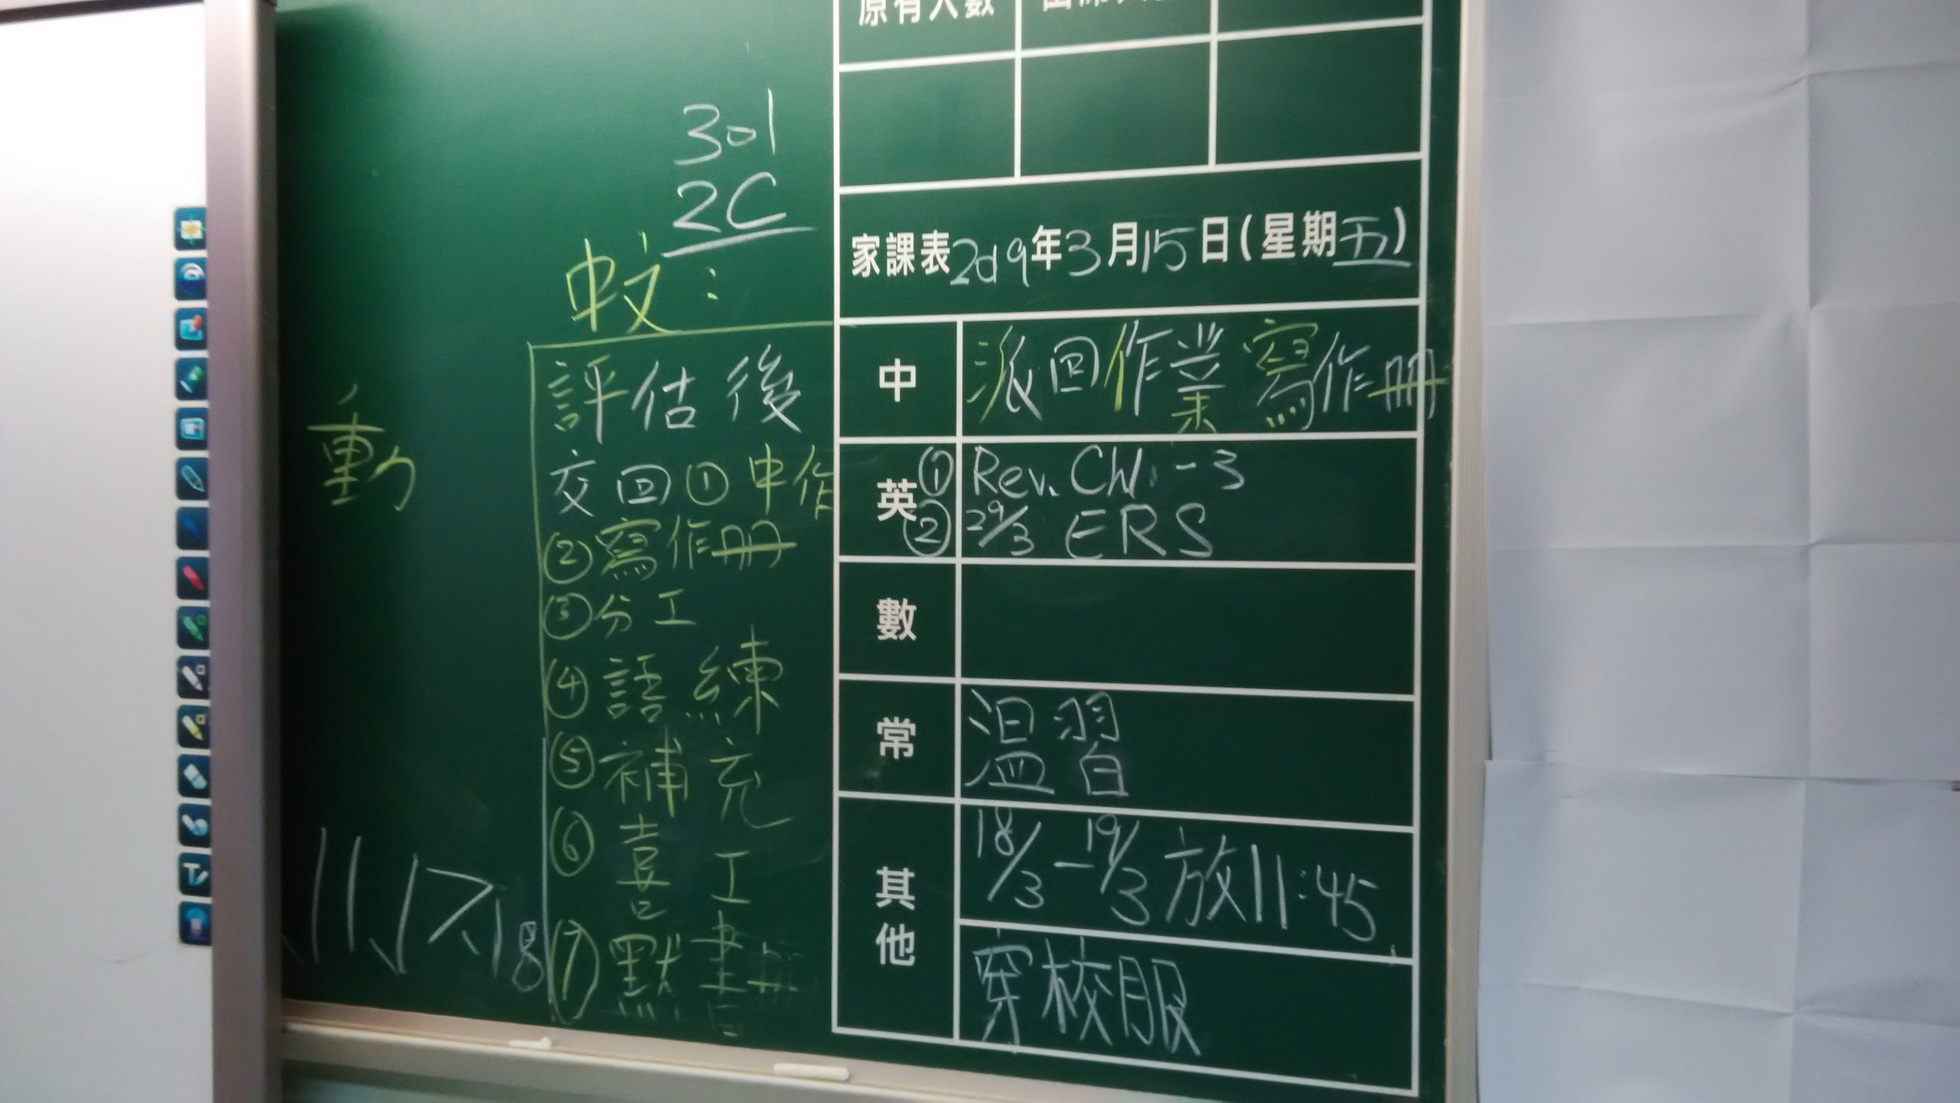 原有人數
301
2C
中文：
評估後
交回①中作
②寫作冊
③分工
④語練
⑤補充
⑥喜工
⑦默書冊
動
家課表2019年3月15日(星期五)
中 派回作業寫作冊
英 ① Rev. Ch1-3
② 29/3 ERS
數
常 溫習
其他 18/3-19/3放11:45
穿校服